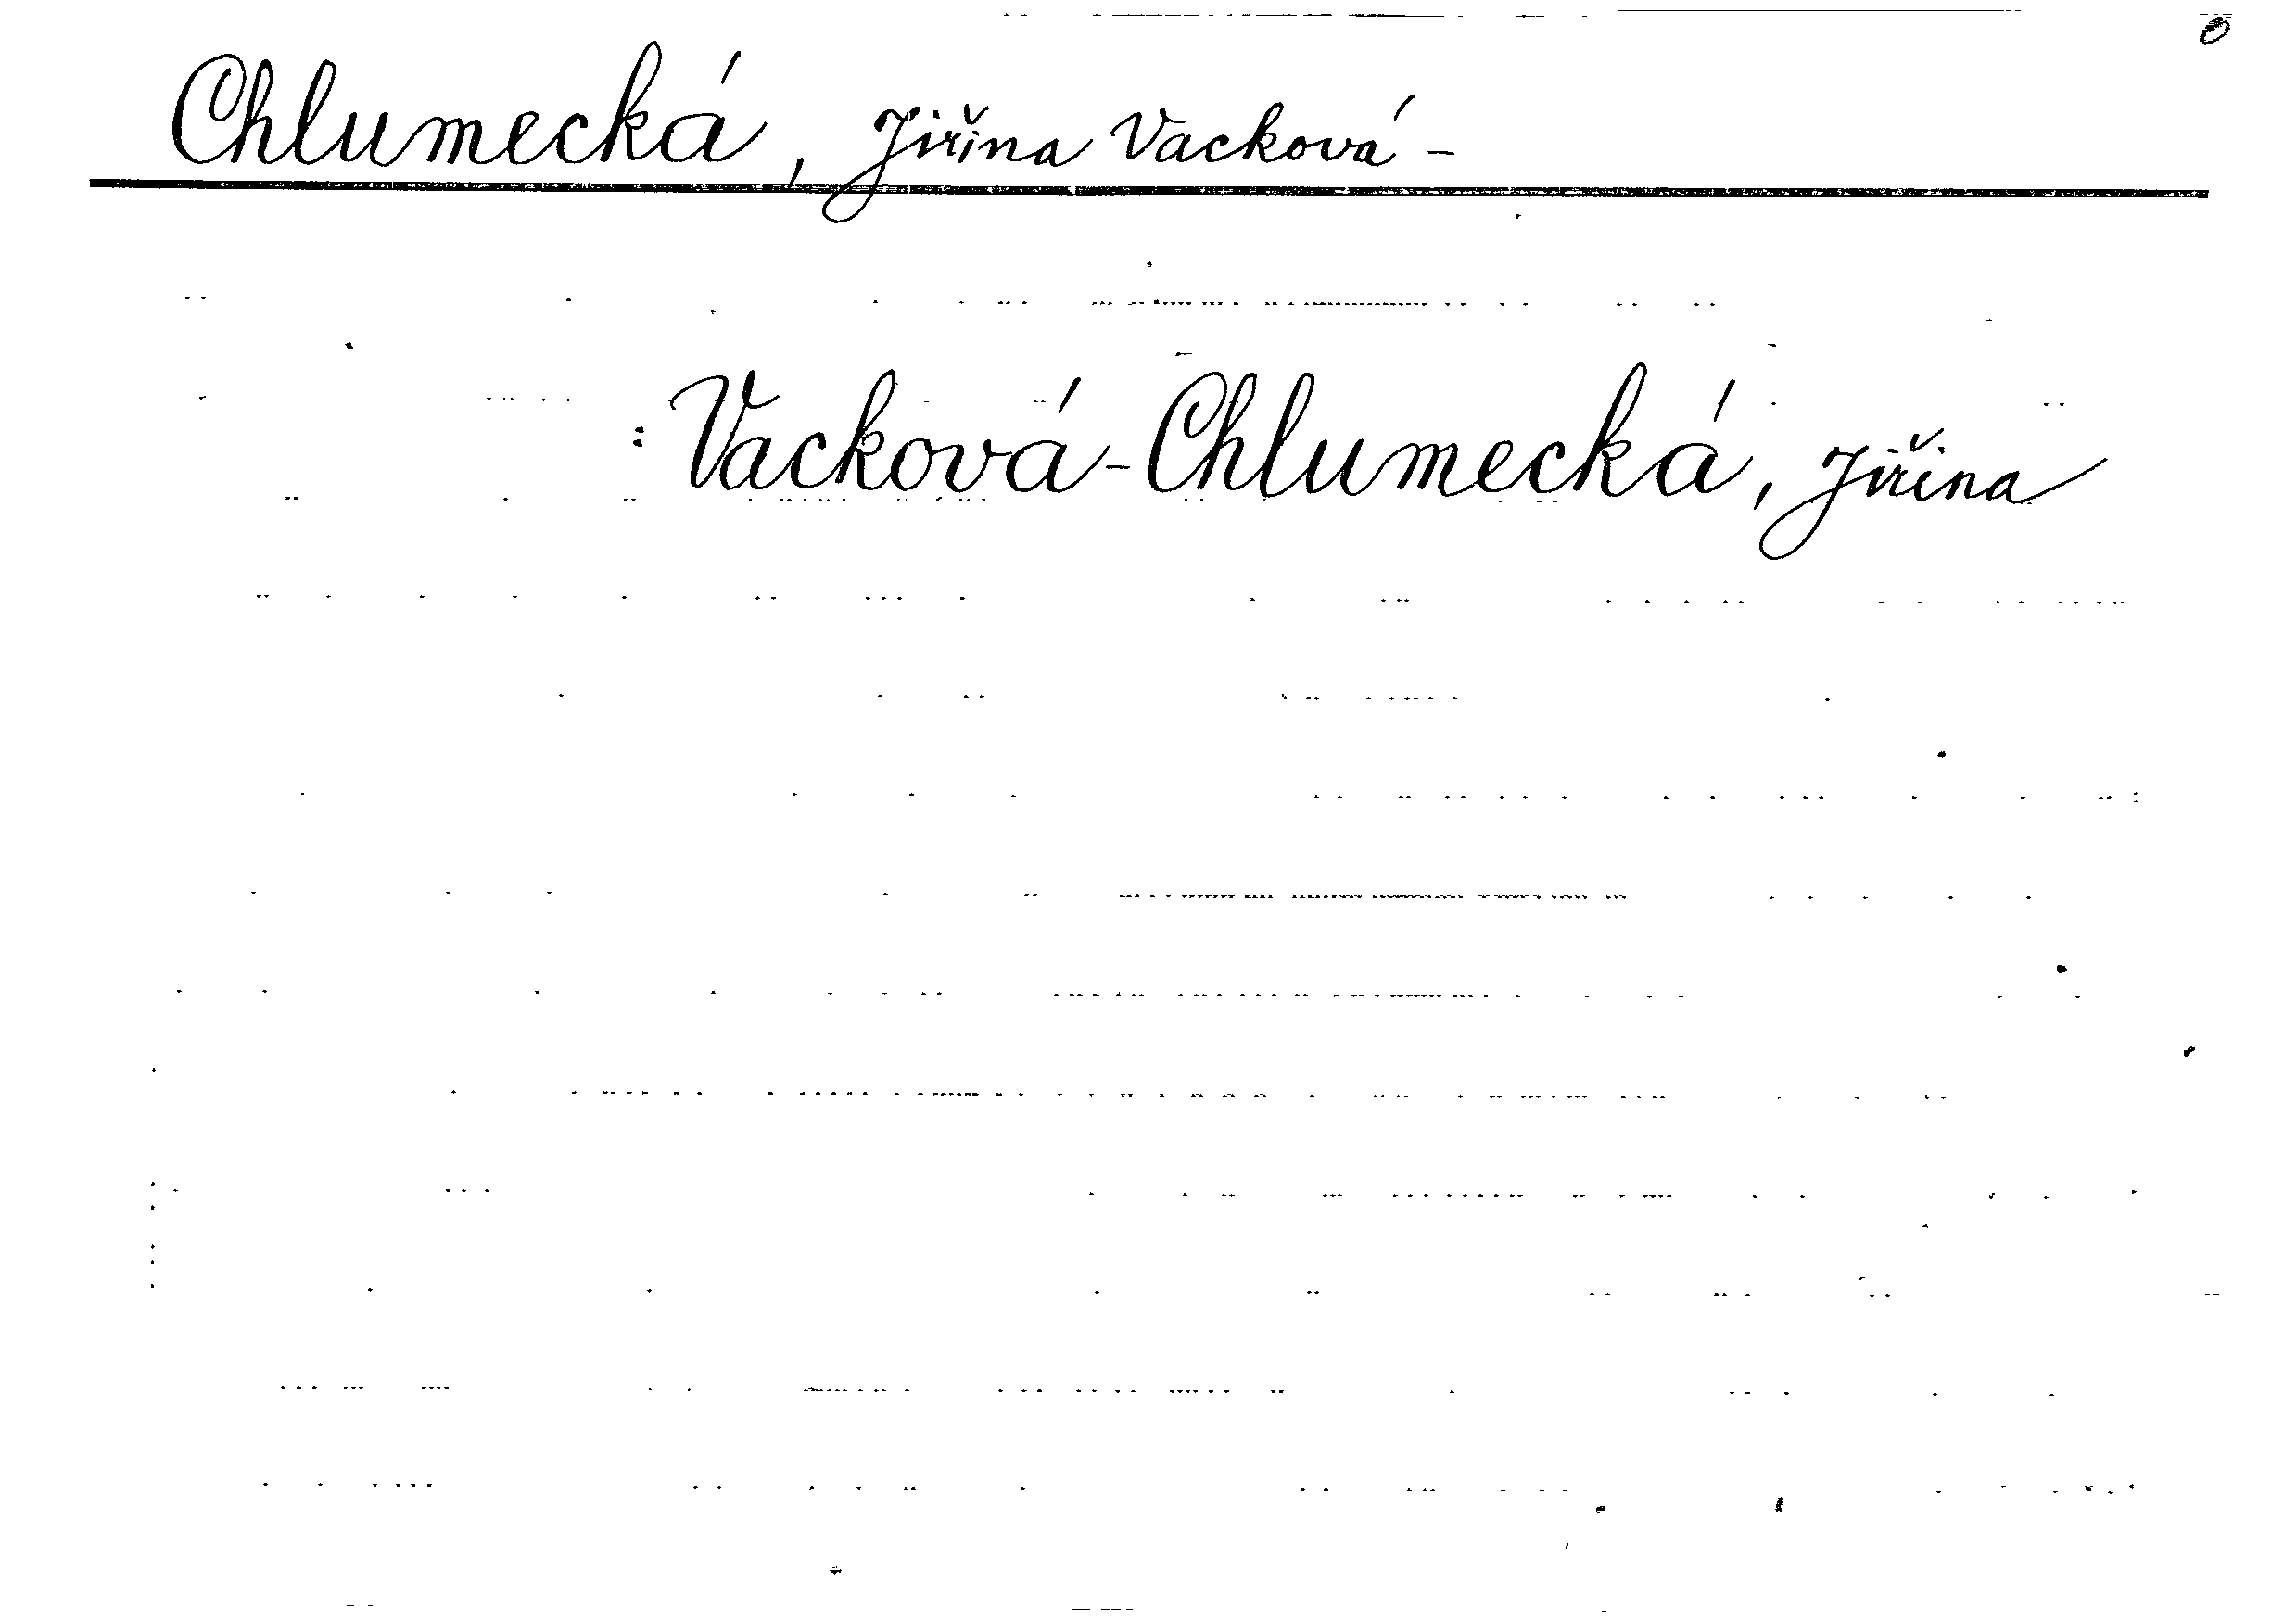 Chlumecká, Jiřina Vacková -
: Vacková-Chlumecká, Jiřina